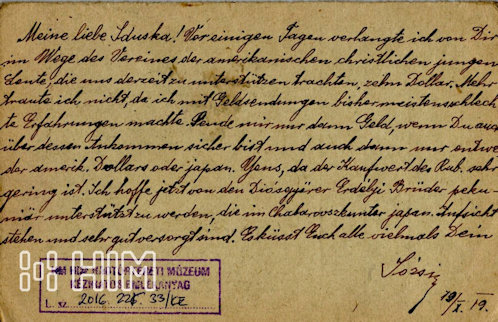 Meine liebe Iduska! Vor einigen Tagen verlangte ich von Dir
im Wege des Vereines der amerikanischen, christlichen jungen
Leute, die uns derzeit zu unterstützen trachten, zehn Dollar. Mehr
traute ich nicht, da ich mit Geldsendungen bisher meistens schlech
te Erfahrungen machte. Sende mir nur dann Geld, wenn Du auch
über dessen Ankommen sicher bist und auch dann nur entwe
der amerik. Dollars oder japan. Yens, da der Kaufwert des Rub. sehr
gering ist. Ich hoffe jetzt von den Diósgyőrer Erdélyi Brüder peku
niär unterstützt zu werden, die im Chabarovsk unter japan. Aufsicht
stehen und sehr gut versorgt sind. Es küsst Euch alle vielmals Dein
19/X. 19.
HIM
MÚZEUM
KÉZIRATOS EMLÉKANYAG
L. sz. 2016. 225. 33/KE